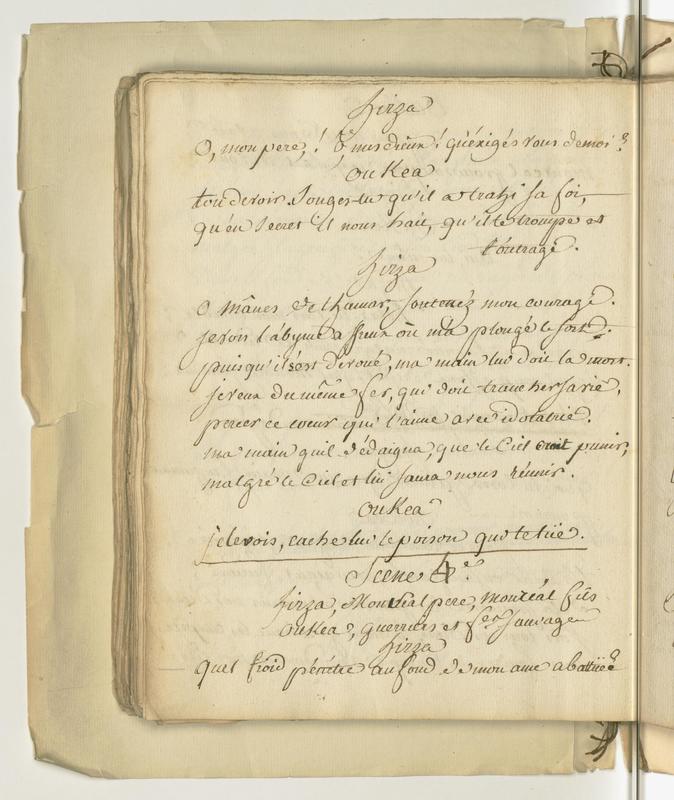 hirza
O, mon pere, ! Ô mes dieux ! qu'exigés vous de moi ?
Oukea
ton devoir. Songes-tu qu'il a trahi sa foi,
qu'en secret il nous hait, qu'il te trompe et
t'outrage.
hirza
O mânes de thamar, soutenez mon courage.
je vois l'abyme affreux où m'a plongé le sort.
puisqu'il s'est devoué, ma main lui doit la mort.
je veux du même fer, qui doit trancher sa vie,
percer ce coeur qui l'aime avec idolatrie.
ma main qu'il dédaigna, que le Ciel croit punir,
malgré le Ciel et lui saura nous réunir.
Oukea
je le vois, cache lui le poison qui te tüe.
Scene 4.e
hirza, Montréal pere, montréal fils
Oukea, guerriers et sauvages
hirza
quel froid pénétre au fond de mon ame abattüe ?